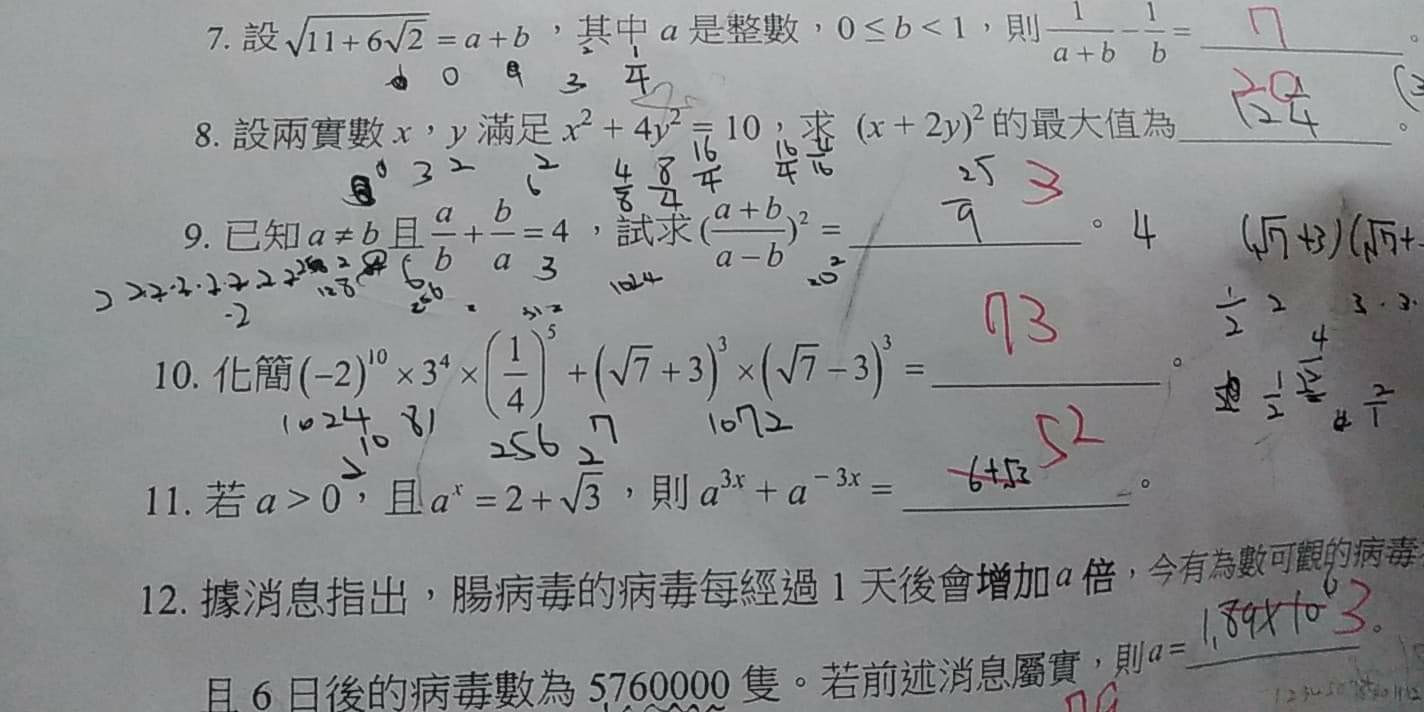 7. 設 √(11+6√2) = a + b ，其中 a 是整數，0 ≤ b < 1，則 1/(a+b) − 1/b = 7 。
0 9 3 1/4
8. 設兩實數 x，y 滿足 x² + 4y² = 10，求 (x + 2y)² 的最大值為 20 。
3 2 6 2 4/8 8/4 16/4 16/4 4/16
9. 已知 a ≠ b 且 a/b + b/a = 4，試求 ((a+b)/(a−b))² = 25/9 3 。 4 (√7+3)(√7+
-2 128 256 3 1024 20² 1/2 2 3 · 3·
10. 化簡 (−2)¹⁰ × 3⁴ × (1/4)⁵ + (√7 + 3)³ × (√7 − 3)³ = 73 。
1024 81 256 7 1072 1/2 2/1
2¹⁰ 2
11. 若 a > 0，且 aˣ = 2 + √3，則 a³ˣ + a⁻³ˣ = 6+√3 52 。
12. 據消息指出，腸病毒的病毒每經過 1 天後會增加 a 倍，今有為數可觀的病毒
且 6 日後的病毒數為 5760000 隻。若前述消息屬實，則 a = 1.89×10⁶ 3 。